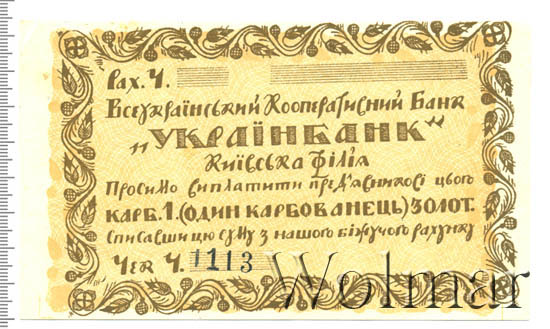 Рах. Ч.
Всеукраїнський Кооперативний Банк
„УКРАЇНБАНК“
Київська філія
Просимо виплатити пред'явникові цього
КАРБ. 1. (ОДИН КАРБОВАНЕЦЬ) ЗОЛОТ.
списавши цю суму з нашого біжучого рахунку
Чек Ч. 1113
Wolmar